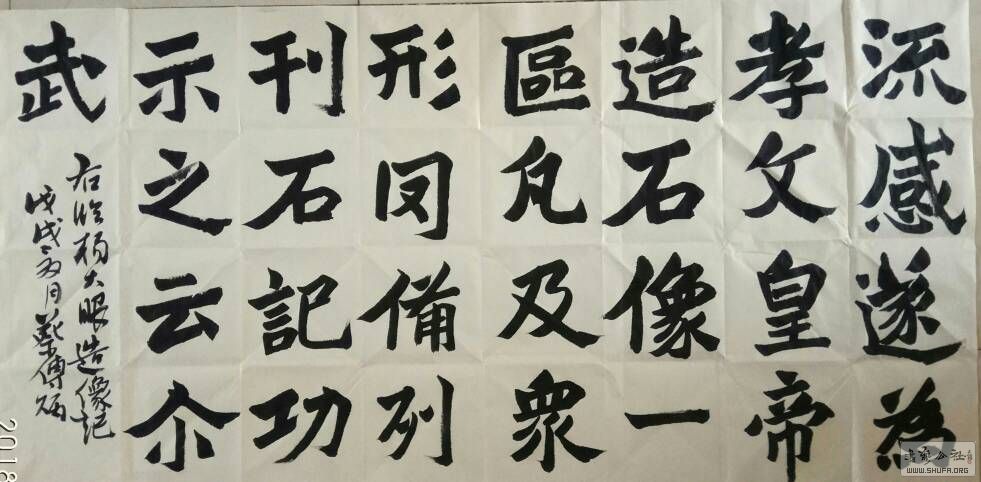 流感遂為
孝文皇帝
造石像一
區凡及眾
形罔備列
刊石記功
示之云尒
武
右临杨大眼造像记
戊戌月蔡傅
2018
WWW.SHUFA.ORG